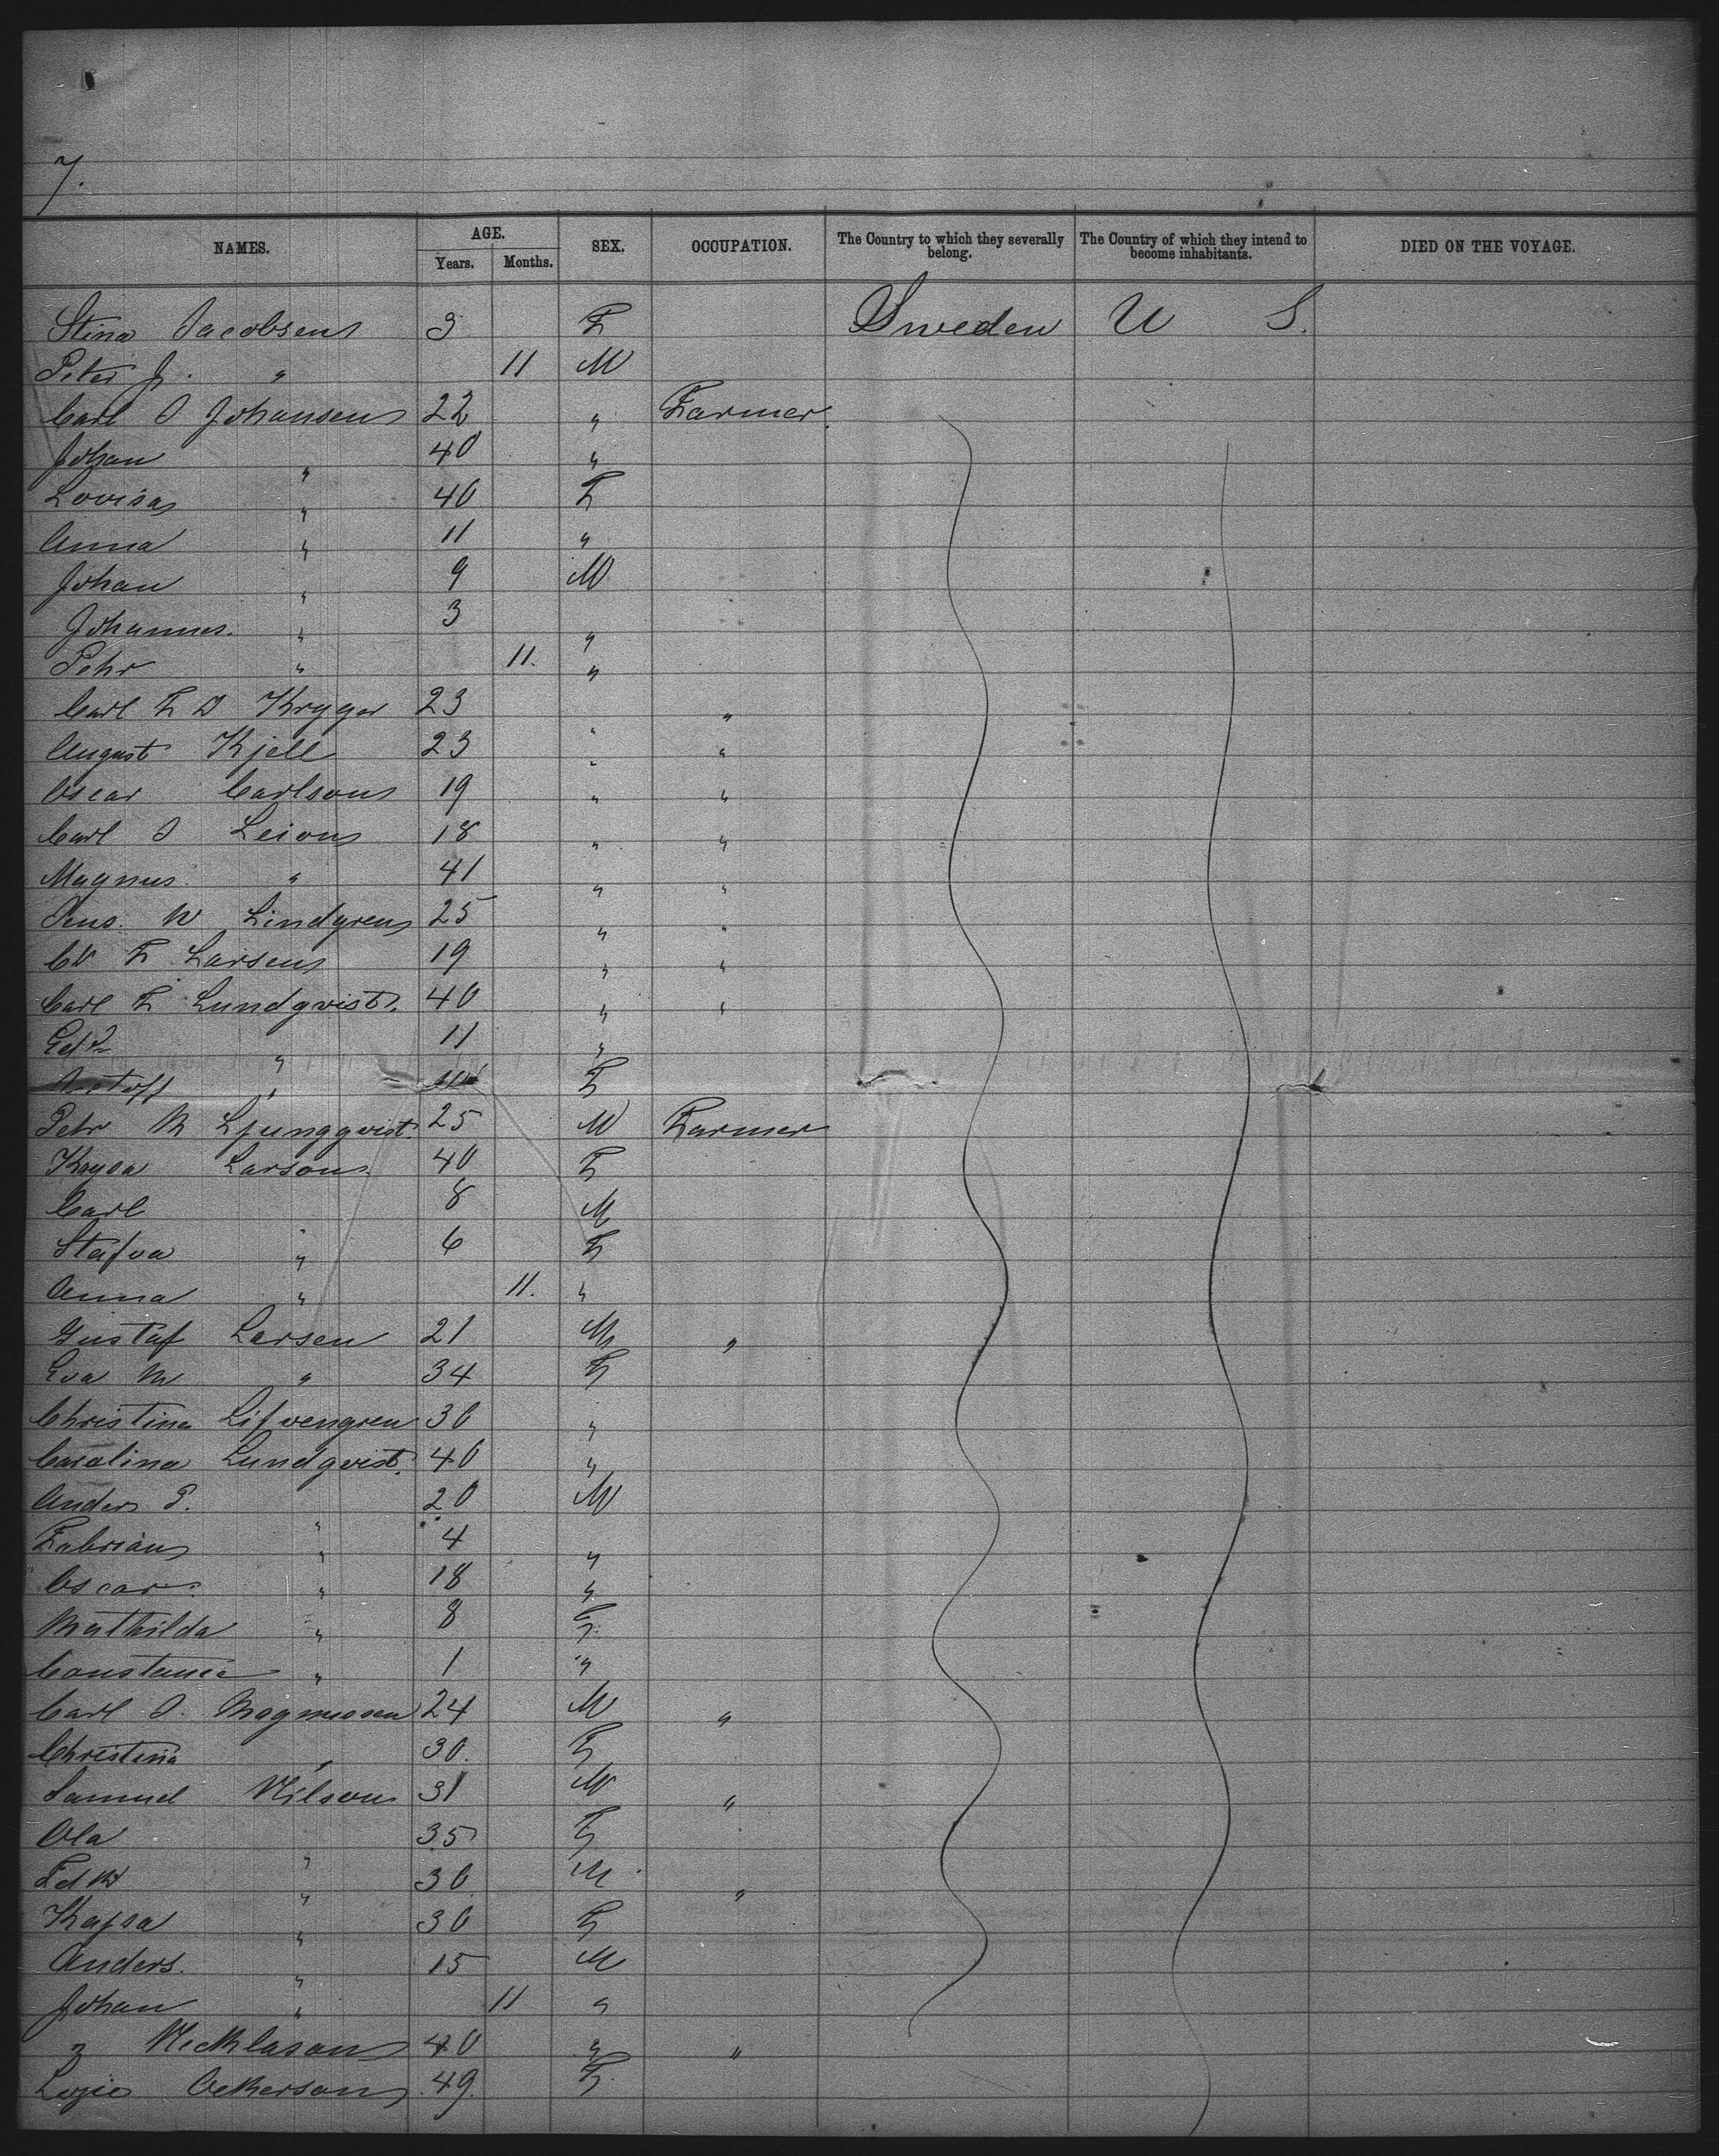 7.
NAMES. AGE. SEX. OCCUPATION. The Country to which they severally belong. The Country of which they intend to become inhabitants. DIED ON THE VOYAGE.
Years. Months.
Stina Jacobsen 3 F Sweden U S.
Peter J. " 11 M
Carl J Johansen 22 " Farmer
Johan " 40 "
Lovisa " 40 F
Anna " 11 "
Johan " 9 M
Johannes " 3 "
Pehr " 11. "
Carl F D Kryger 23 " "
August Kjell 23 " "
Oscar Carlson 19 " "
Carl J Leion 18 " "
Magnus " 41 " "
Jens. W Lindgren 25 " "
F Larsen 19 " "
Carl F Lundqvist. 40 " "
" 11 "
" F
Pehr M Ljungqvist. 25 M Farmer
Kaysa Larson 40 F
Carl 8 M
" 6 F
Anna " 11. "
Gustaf Larsen 21 M "
Eva M " 34 F
Christina Lifvengren 30 "
Carolina Lundqvist. 40 "
Anders P. " 20 M
Fabrian " 4 "
Oscar " 18 "
Mathilda " 8 F
Constancie " 1 "
Carl J. Magnussen 24 M "
Christina " 30. F
Samuel Nilson 31 M "
Ola " 35 F
" 30 M "
Kajsa " 30 F
Anders. " 15 M
Johan " 11 "
" Nicklason 40 " "
49. F